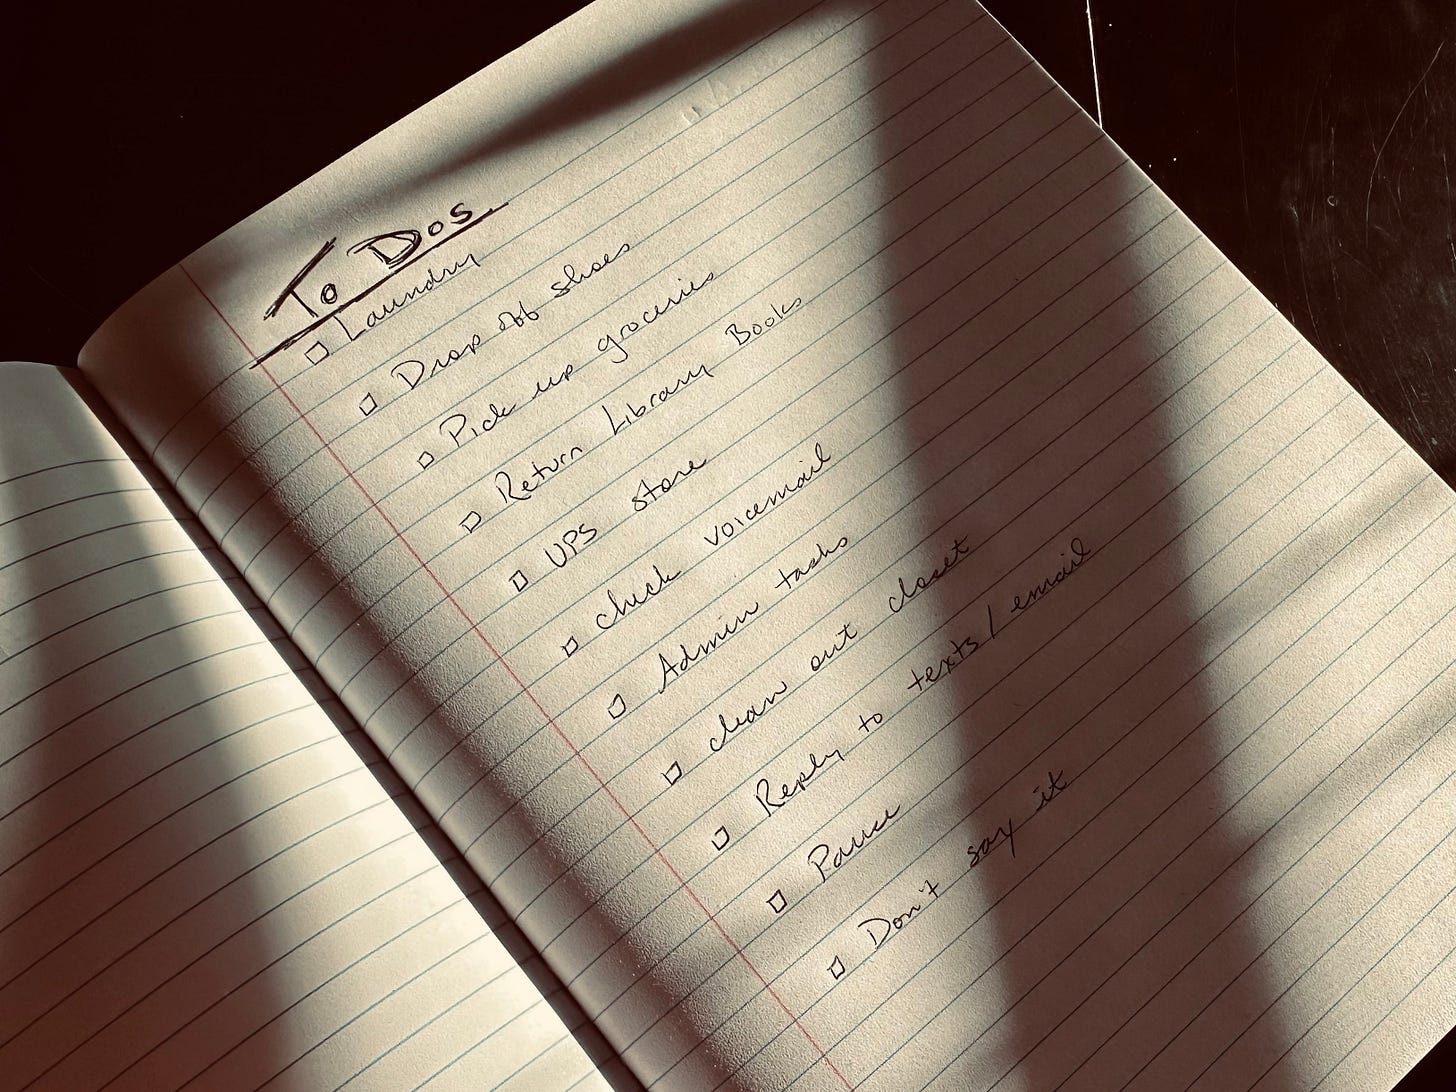 To Dos
Laundry
Drop off shoes
Pick up groceries
Return Library Books
UPS store
check voicemail
Admin tasks
clean out closet
Reply to texts / email
Pause
Don't say it